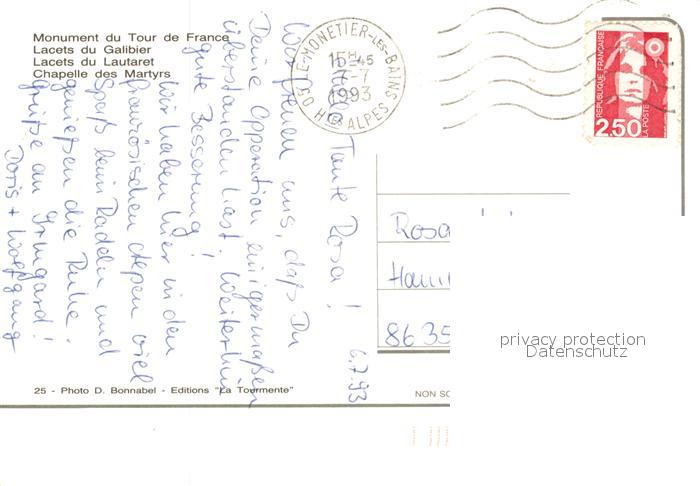 Monument du Tour de France
Lacets du Galibier
Lacets du Lautaret
Chapelle des Martyrs
LE-MONETIER-LES-BAINS
15H45
7-7
1993
05 HTES ALPES
REPUBLIQUE FRANÇAISE
2,50
LA POSTE
6.7.93
Tante Rosa!
Wir freuen uns, daß Du
Deine Opperation einigermaßen
überstanden hast. Weiterhin
gute Besserung!
Wir haben hier in den
französischen Alpen viel
Spaß beim Radeln und
genießen die Ruhe.
Grüße an Irmgard!
Doris + Wolfgang
Rosa
8635
privacy protection
Datenschutz
25 - Photo D. Bonnabel - Editions "La Tourmente"
NON